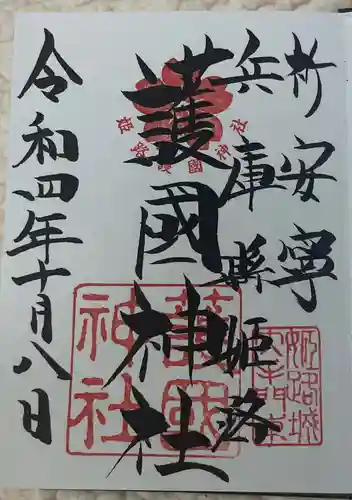 祈安寧
兵庫縣姫路
護國神社
令和四年十月八日
姫路護國神社
護國
神社
姫路城